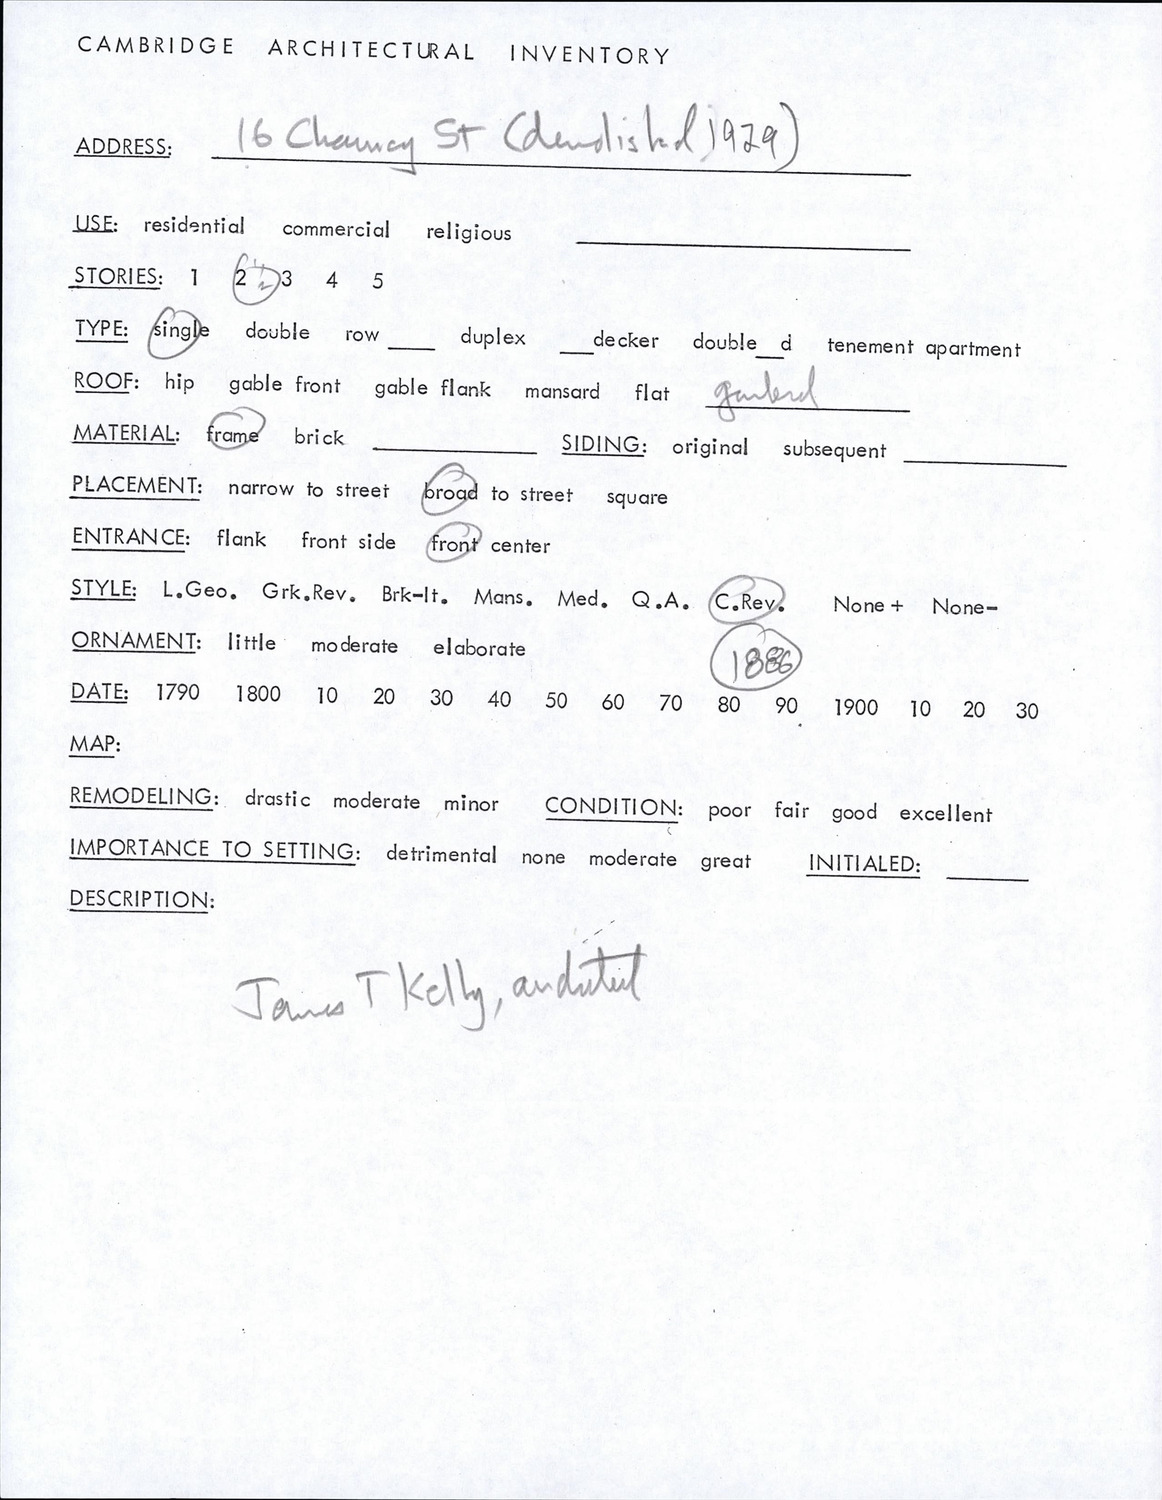 CAMBRIDGE ARCHITECTURAL INVENTORY
ADDRESS: 16 Chauncy St (demolished 1929)
USE: residential commercial religious
STORIES: 1 2 ½ 3 4 5
TYPE: single double row ____ duplex ___decker double__d tenement apartment
ROOF: hip gable front gable flank mansard flat gambrel
MATERIAL: frame brick ____ SIDING: original subsequent ____
PLACEMENT: narrow to street broad to street square
ENTRANCE: flank front side front center
STYLE: L.Geo. Grk.Rev. Brk-It. Mans. Med. Q.A. C.Rev. None+ None-
ORNAMENT: little moderate elaborate 1886
DATE: 1790 1800 10 20 30 40 50 60 70 80 90 1900 10 20 30
MAP:
REMODELING: drastic moderate minor CONDITION: poor fair good excellent
IMPORTANCE TO SETTING: detrimental none moderate great INITIALED: ____
DESCRIPTION:
James T Kelly, architect